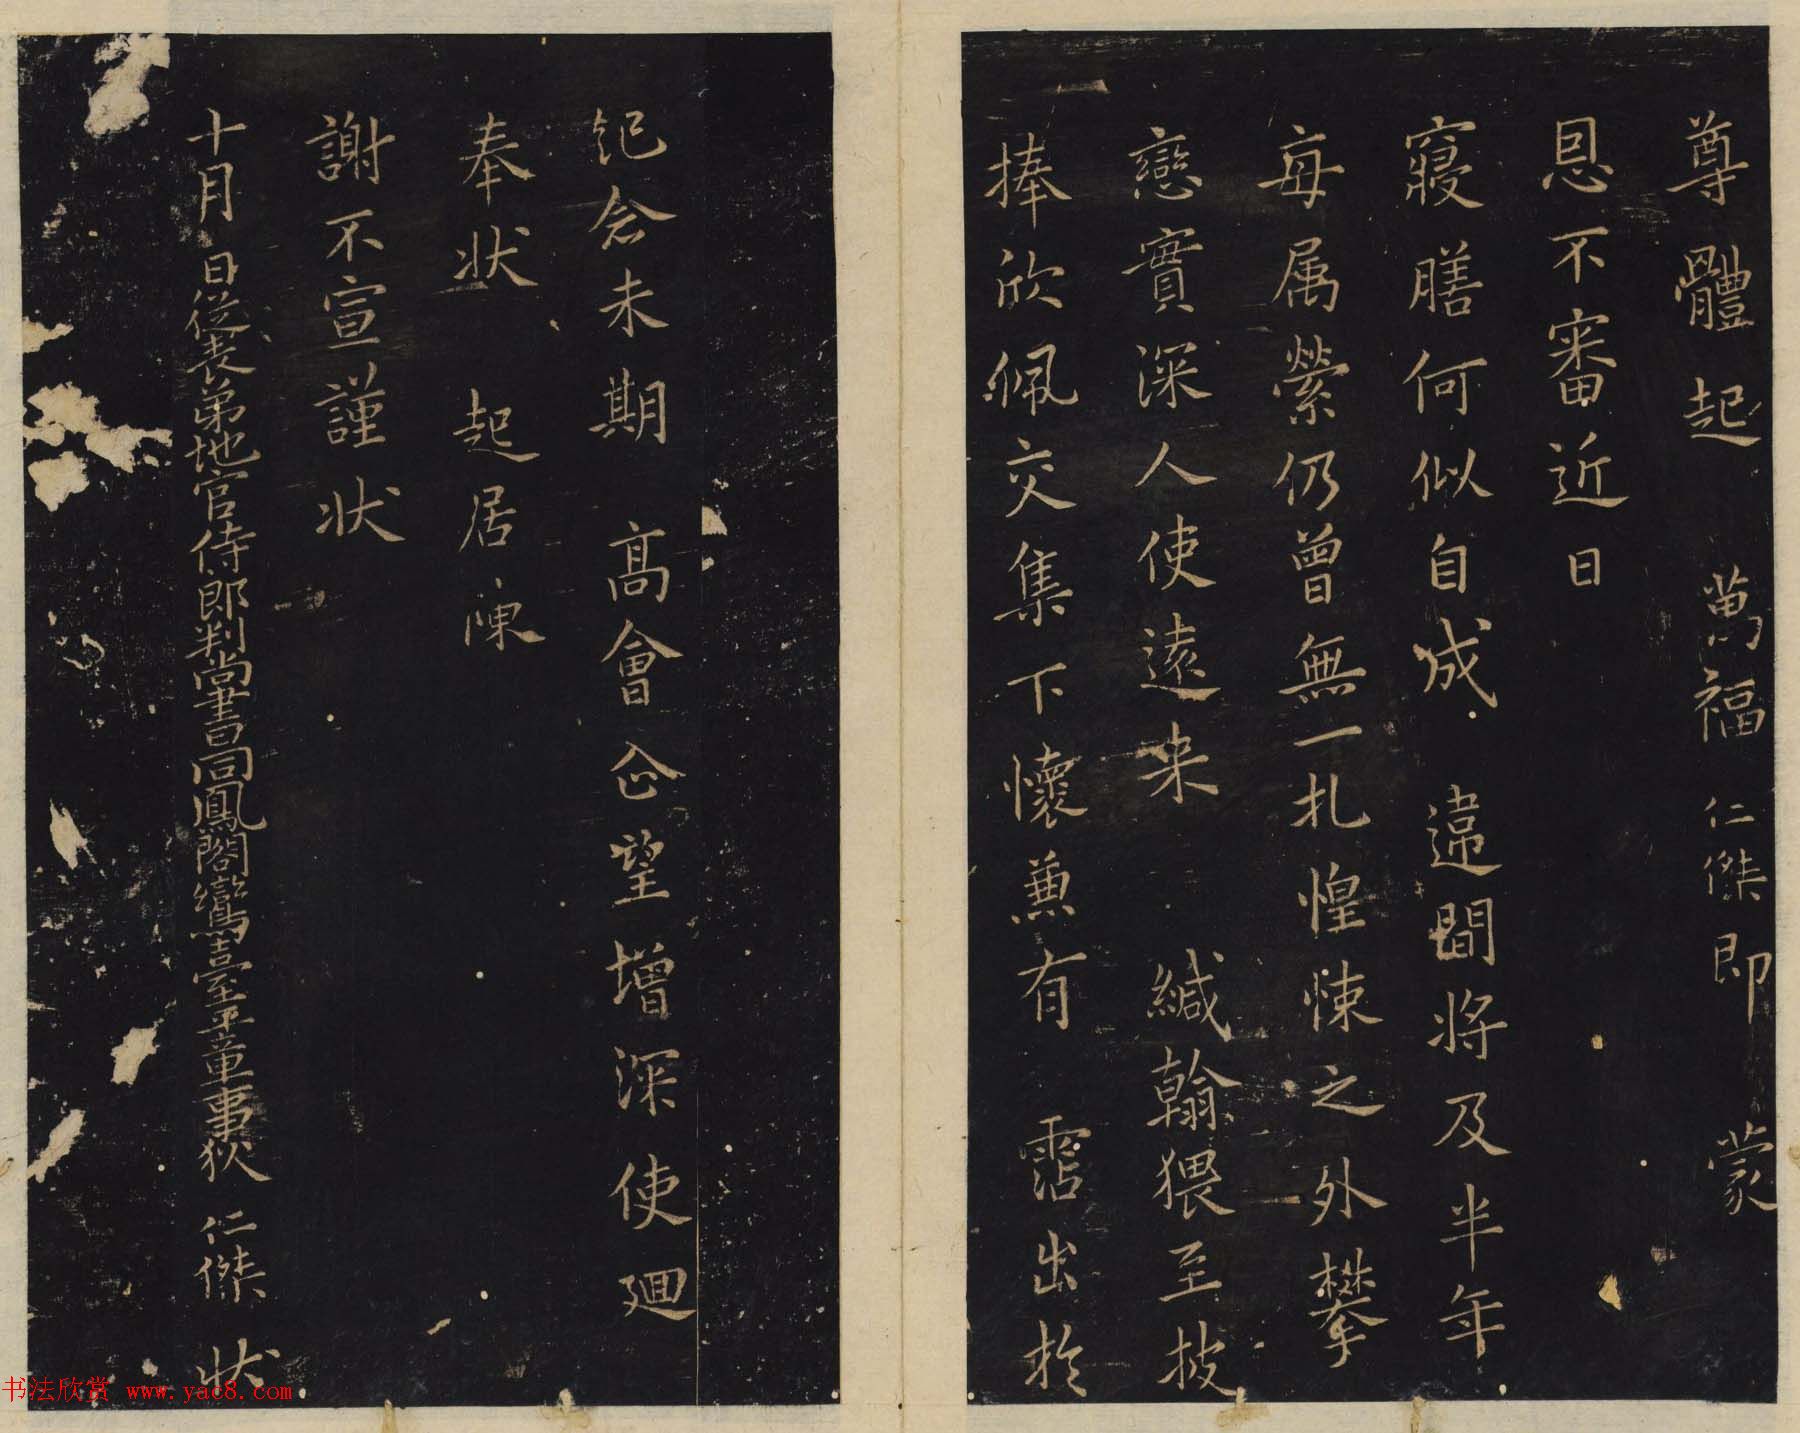 尊體起 萬福仁傑即 蒙
恩不審近日
寢膳何似自成 違閒將及半年
每属縈仍曾無一札惶悚之外攀
戀實深人使遠来 緘翰猥至披
捧欣佩交集下懷蒹有 霑出於
念未期 髙會企望增深使廻
奉状 起居陳
謝不宣謹状
十月 日従表弟地官侍郎判尚書同鳳閣鸞臺平章事狄 仁傑 状
书法欣赏 www.yac8.com